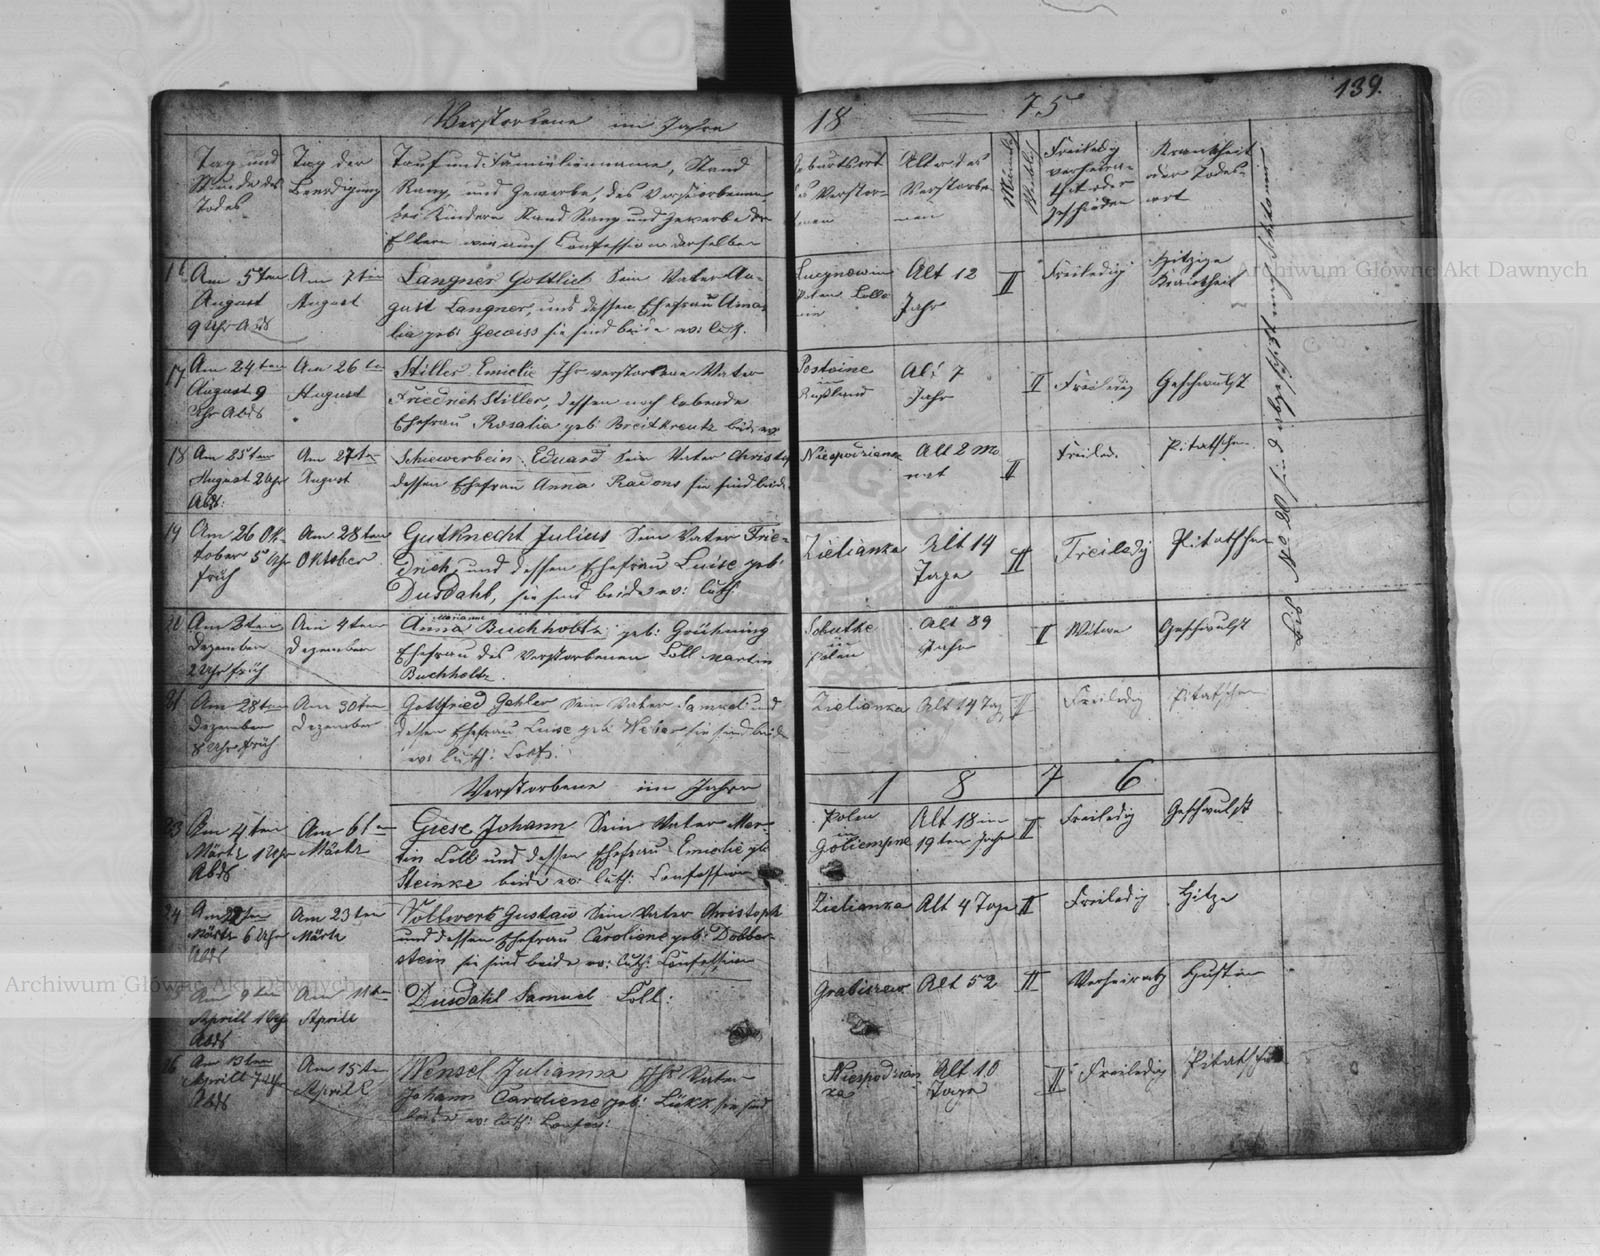 139.
Verstorbene im Jahre 18 75
Tag und
Stunde des
Todes
Tag der
Beerdigung
Tauf und Familienname, Stand
Rang und Gewerbe, des Verstorbenen
bei Kindern Stand Rang und Gewerbe der
Eltern wie auch Confession derselben
Geburtsort
des Verstor-
benen
Alter des
Verstorbe-
nen
Männlich
Weiblich
Freiledig
verheira-
thet oder
geschieden
Krankheit
oder Todes-
art
16
Am 5ten
August
9 Uhr Abds
Am 7ten
August
Langner Gottlieb Sein Vater Au-
gust Langner, und dessen Ehefrau Ama-
lia geb: Gewiss sie sind beide ev: luth.
Polen
Alt 12
Jahr
II
Freiledig
Hitzige
Krankheit
17
Am 24ten
August 9
Uhr Abds
Am 26ten
August
Stiller Emielie Ihr verstorbene Vater
Friedrich Stiller, dessen noch lebende
Ehefrau Rosalia geb: Breitkreutz beide ev:
Rußland
Alt 7
Jahr
II
Freiledig
Geschwulst
18
Am 25ten
August 2 Uhr
Abds:
Am 27ten
August
Schiewerbein Eduard Sein Vater Christop
dessen Ehefrau Anna Radons sie sind beide
Niespodzianka
Alt 2 Mo
nat
II
Freiled.
Pitatschen
19
Am 26 Ok-
tober 5 Uhr
früh
Am 28ten
Oktober
Gutknecht Julius Sein Vater Frie-
drich, und dessen Ehefrau Luise geb:
Dusdahl, sie sind beide ev: luth:
Zielianka
Alt 14
Tage
II
Freiledig
Pitatschen
20
Am 2ten
Dezember
2 Uhr früh
Am 4ten
Dezember
Marianna
Anna Buchholtz geb: Grühning
Ehefrau des Verstorbenen Coll Martin
Buchholtz.
in
Polen
Alt 89
Jahr
II
Witwe
Geschwulst
21
Am 28ten
Dezember
8 Uhr früh
Am 30ten
Dezember
Gottfried Gehler Sein Vater Samuel und
dessen Ehefrau Luise geb: Weber, sie sind beide
ev: luth: Conf:
Zielianka
Alt 14 Tag
II
Freiledig
Pitatschen
Verstorbene im Jahre 1 8 7 6
23
Am 4ten
Märtz 1 Uhr
Abds
Am 6ten
Märtz
Giese Johann Sein Vater Mar-
tin Coll und dessen Ehefrau Emielie geb
Steinke beide ev: luth: Confession
Polen
in
Alt 18 im
19ten Jahr
II
Freiledig
Geschwulst
24
Märtz 6 Uhr
Abds
Am 23ten
Märtz
Vollwerk Gustaw Sein Vater Christoph
und dessen Ehefrau Caroliene geb: Dobber-
stein sie sind beide ev: luth: Confession
Zielianka
Alt 4 Tage
II
Freiledig
Hitze
25
Am 9ten
Aprill 1 Uhr
Abds
Am 11ten
Aprill
Dusdahl Samuel Coll:
Grabiszew
Alt 52
II
Verheiratz
Husten
26
Am 13ten
Aprill 7 Uhr
Abds
Am 15ten
Aprill
Wensel Julianna Ihr Vater
Johann Caroliene geb: Lükk, sie sind
beide ev: luth: Confess:
Niespodzian
ka
Alt 10
Tage
II
Freiledig
Pitatschen
Archiwum Główne Akt Dawnych
Archiwum Główne Akt Dawnych